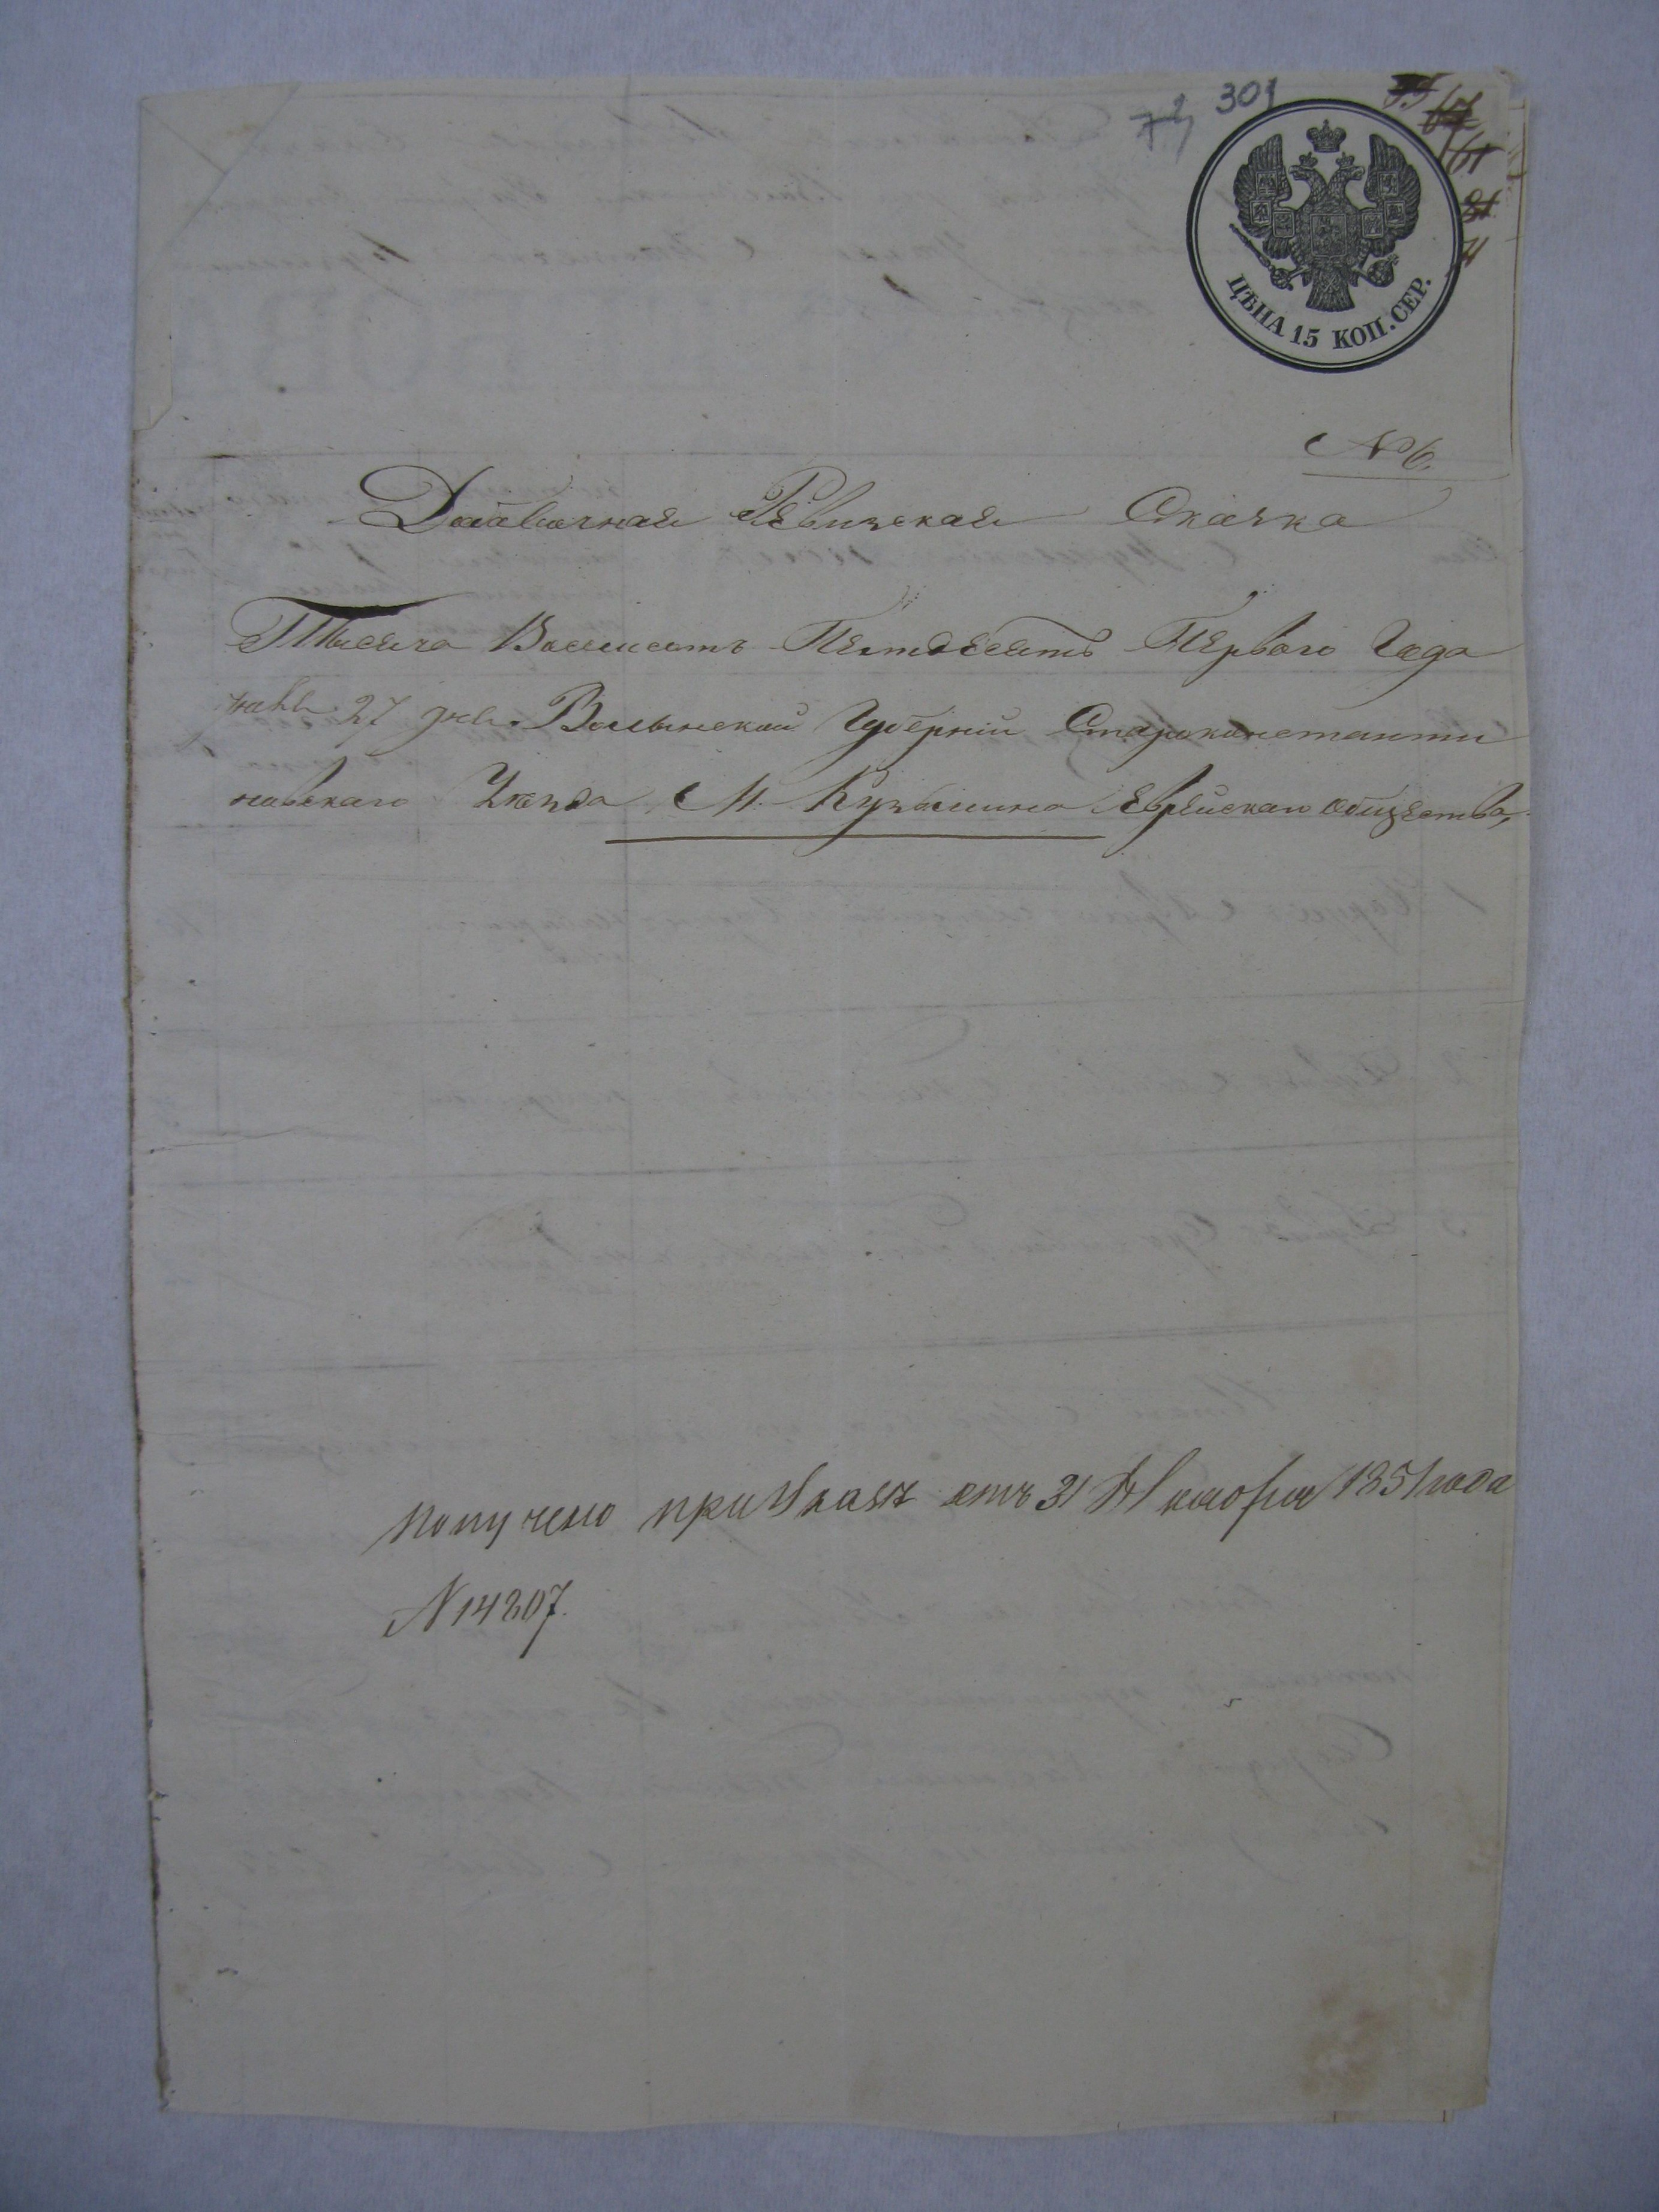 301
ЦѢНА 15 КОП. СЕР.
№ 6.
Добавочная Ревизская Сказка
Тысяча Восемсотъ Пятдесятъ Перваго Года
27 дня Волынской Губерніи Староконстанти
новскаго Уѣзда М. Кузьмина Еврейскаго Общества,
получено при Указѣ отъ 31 Декабря 1851 года
N 14207.